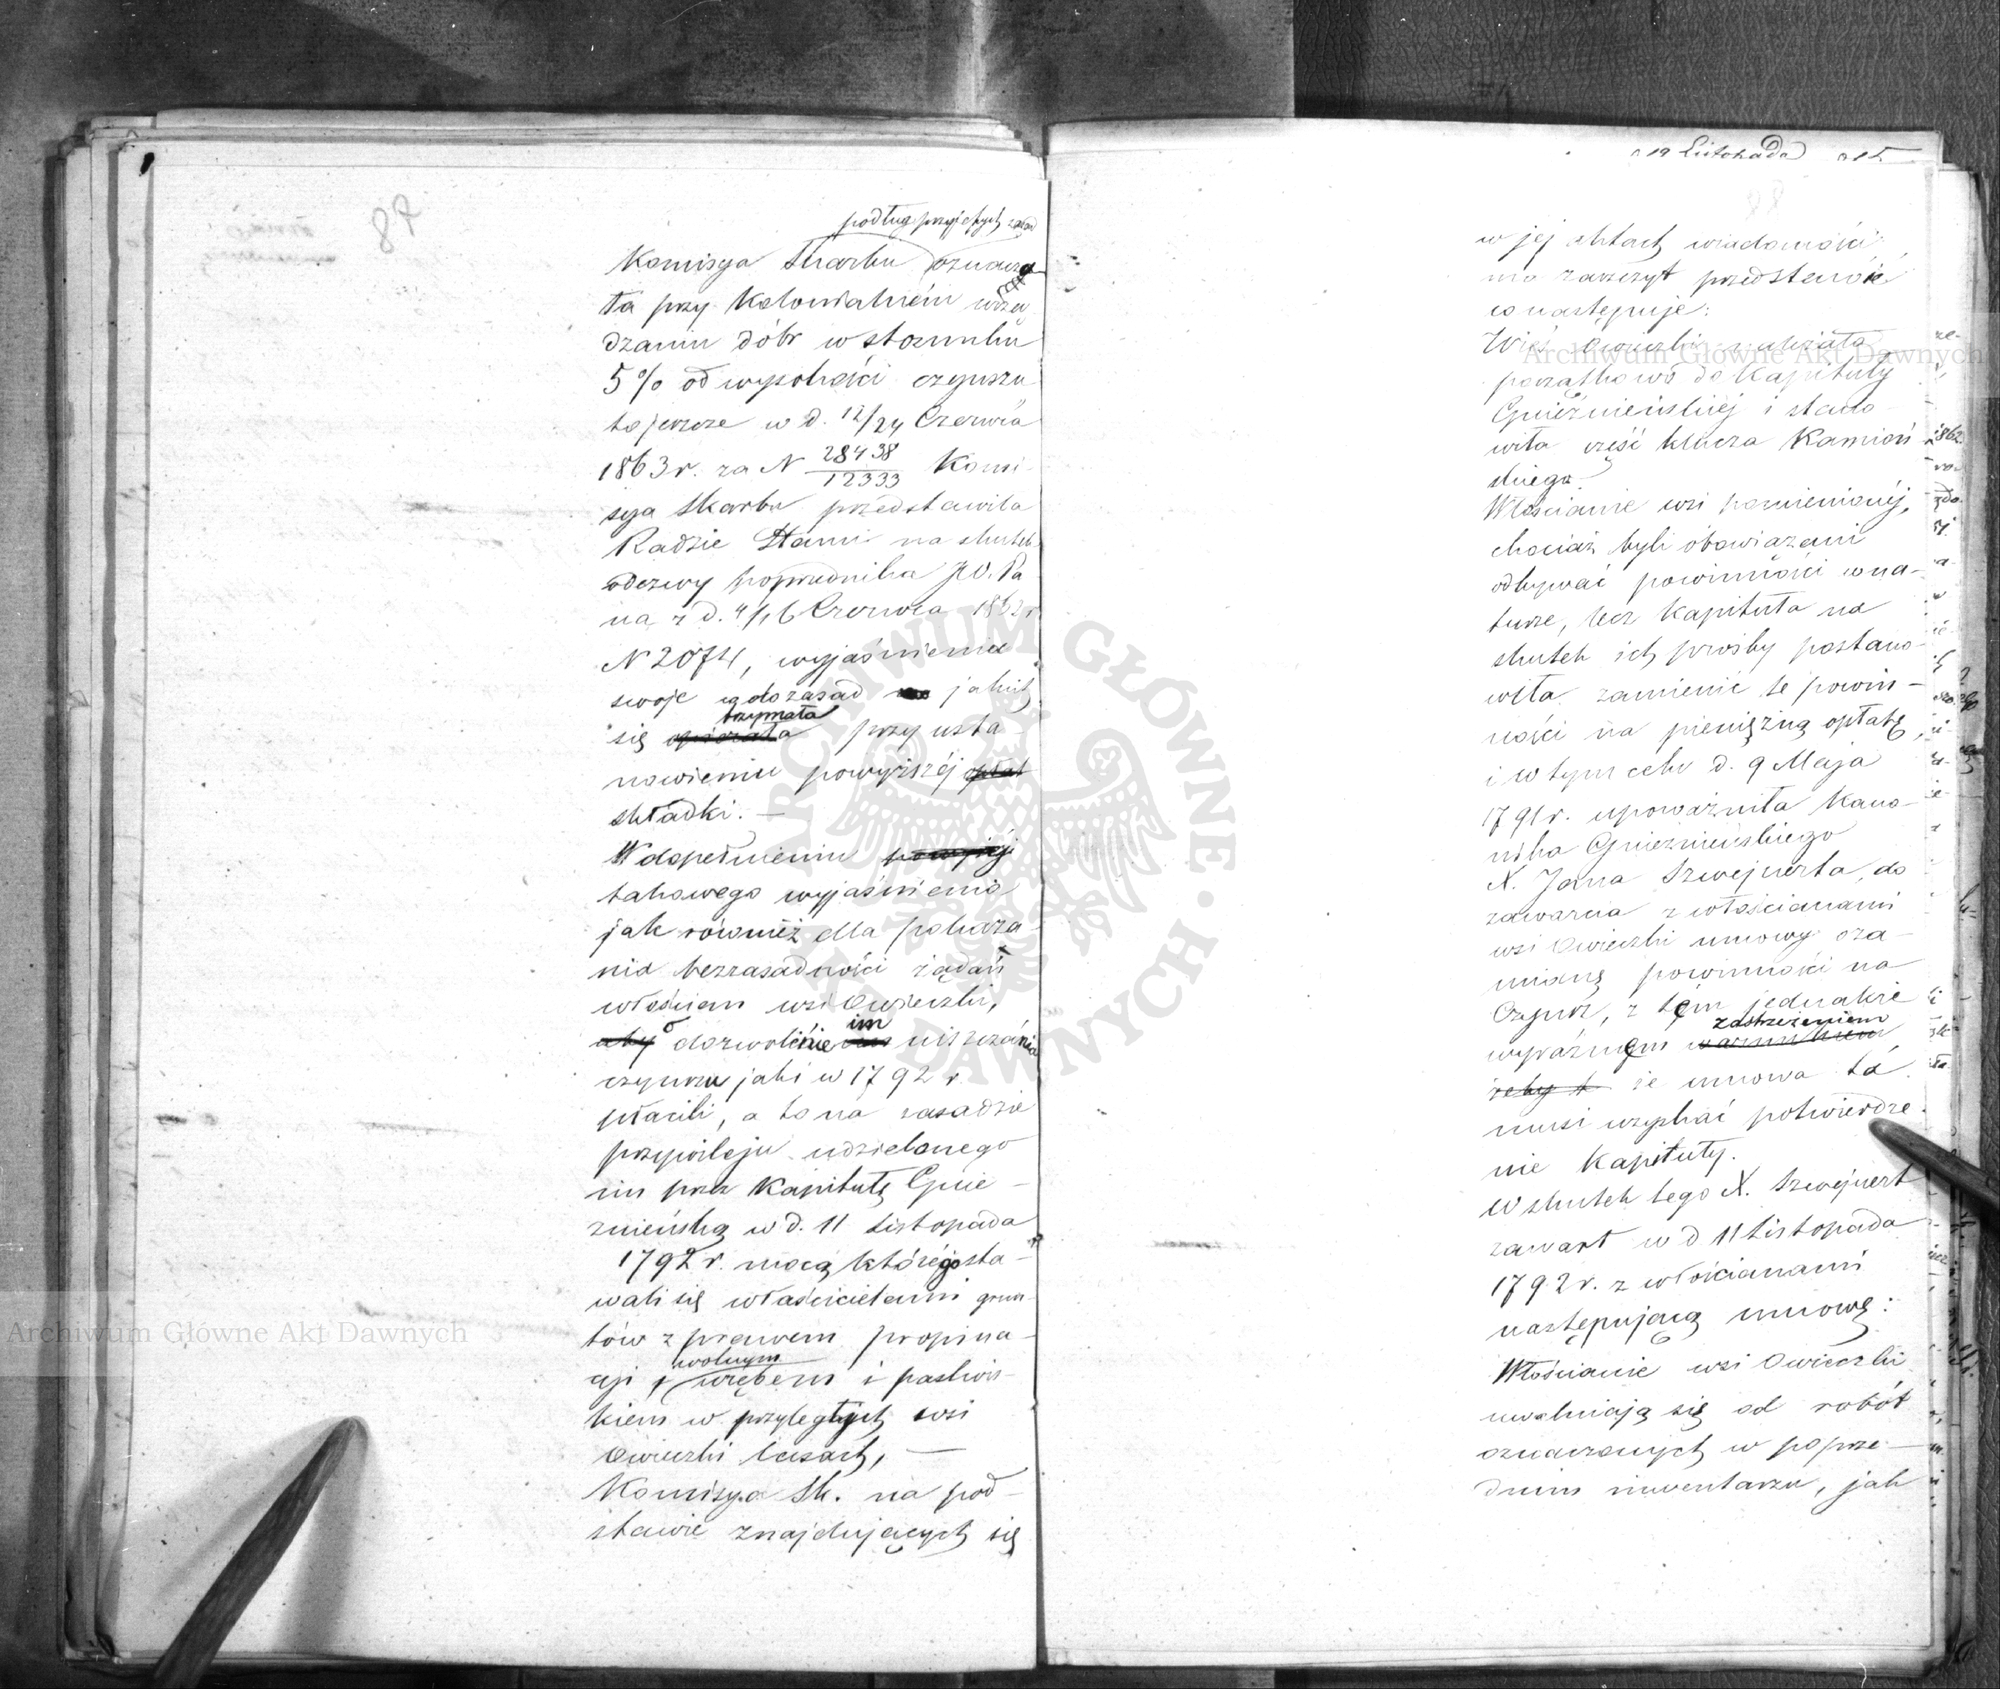 podług przyjętych zasad
Komisya Skarbu oznacza
ła przy kolonialném urzą
dzaniu dóbr w stosunku
5% od wysokości czynszu
to jeszcze w d. 12/24 Czerwca
1863 r. za N 28438/12333 Komi
sya Skarbu przedstawiła
Radzie Stanu na skutek
odezwy poprzednika JW. Pa
na z d. 4/16 Czerwca 1862 r
N 2074, wyjaśnienia
swoje co do zasad jakich
się trzymała przy usta
nowieniu powyższéj
składki. —
W dopełnieniu
takowego wyjaśnienia
jak również dla pokaza
nia bezzasadności żądań
włościan wsi Owieczki,
o dozwolenie im uiszczania
czynszu jaki w 1792 r
płacili, a to na zasadzie
przywileju udzielonego
im przez Kapitułę Gnie-
znieńską w d. 11 Listopada
1792 r. mocą którégo sta-
wali się właścicielami grun-
tów z prawem propina-
cyi i wolnym wrębem i pastwis-
kiem w przyległych wsi
Owieczki lasach, —
Komisya Sk. na pod-
stawie znajdujących się
19 Listopada
w jéj aktach wiadomości
ma zaszczyt przedstawić
co następuje:
Wieś Owieczki należała
początkowo do Kapituły
Gnieźnieńskiéj i stano-
wiła część klucza Kamień
skiego.
Włościanie wsi pomienionéj,
chociaż byli obowiązani
odbywać powinności w na-
turze, lecz Kapituła na
skutek ich prośby postano-
wiła zamienić te powin-
ności na pieniężną opłatę,
i w tym celu d. 9 Maja
1791 r. upoważniła Kano-
nika Gnieznieńskiego
X. Jana Szwejnerta, do
zawarcia z włościanami
wsi Owieczki umowy o za-
mianę powinności na
Czynsz, z tém jednakże
wyraźnem zastrzeżeniem
że umowa ta
musi uzyskać potwierdze-
nie Kapituły.
W skutek tego X. Szwejnert
zawarł w d 11 Listopada
1792 r. z włościanami
następującą umowę:
Włościanie wsi Owieczki
uwalniają się od robót
oznaczonych w poprze-
dnim inwentarzu, jak
Archiwum Główne Akt Dawnych
Archiwum Główne Akt Dawnych
ARCHIWUM GŁÓWNE AKT DAWNYCH